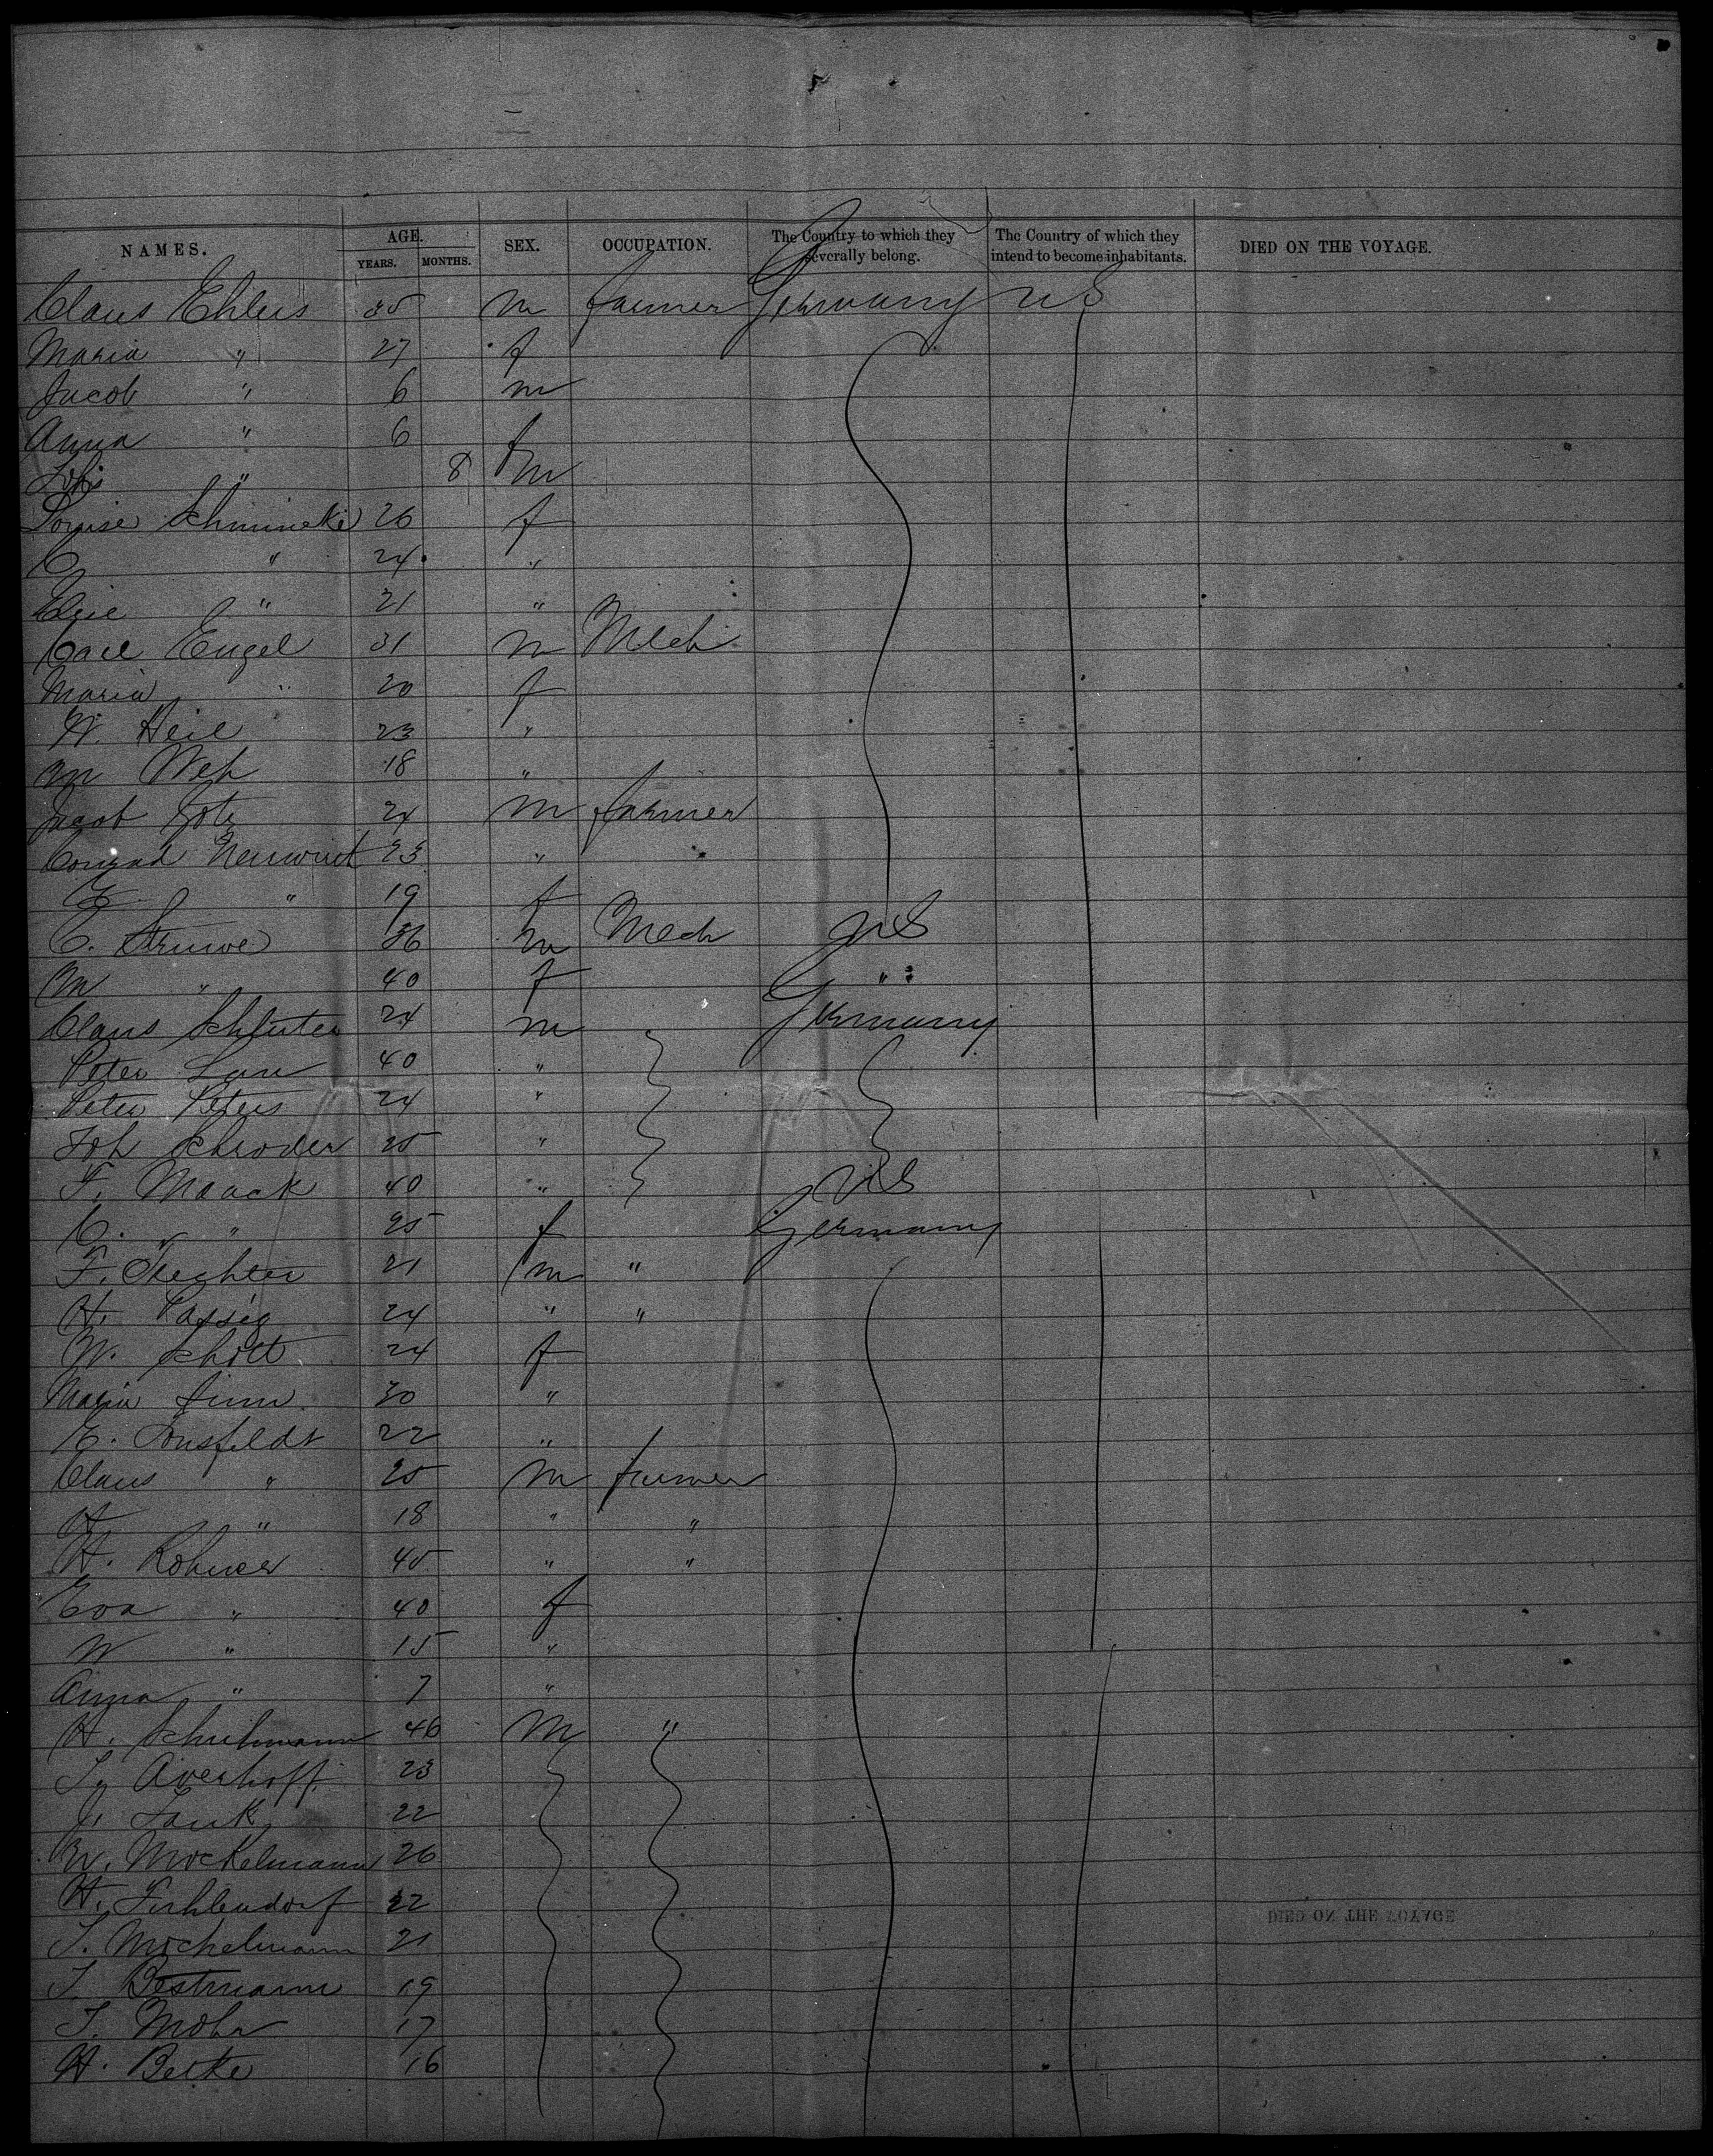 NAMES. AGE. YEARS. MONTHS. SEX. OCCUPATION. The Country to which they severally belong. The Country of which they intend to become inhabitants. DIED ON THE VOYAGE.
Claus Ehlers 35 m farmer Germany US
Maria " 27 f
Jacob " 6 m
Anna " 6 f
" 8 m
Louise Schmincke 26 f
C " 24 "
Elsie " 21 "
Carl Engel 31 m Mech
Maria " 20 f
W. Heil 23 "
18 "
Jacob Gotz 24 m farmer
Conrad Neuwirt 23 " "
E " 19 f
C. Struwe 36 m Mech US
M " 40 f "
Claus Schluter 24 m Germany
Peter Lau 40 "
Peter Peters 24 "
Joh Schroder 25 "
F. Maack 40 " US
C. " " 25 f Germany
F. 21 m "
H. Passig 24 " "
W. Schott 24 f
Maria 30 "
E. Tonsfeldt 22 "
Claus " 25 m farmer
H " 18 " "
H. Rohwer 45 " "
Eva " 40 f
W " 15 "
Anna " 7 "
H. Schuhmann 46 m "
Averhoff 23
J. Tank 22
W. Mockelmann 26
H. 22
J. Mochelmann 21
J Bestmann 19
J. Mohr 17
H. Betke 16
DIED ON THE VOYAGE